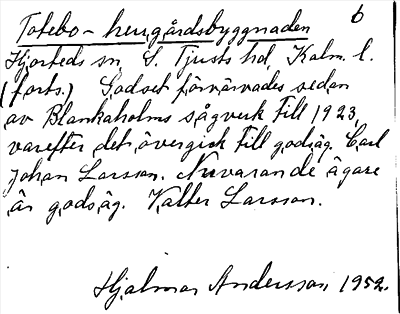 6
Totebo - herrgårdsbyggnaden
Hjorteds sn, S. Tjusts hd, Kalm. l.
(forts.) Godset förvärvades sedan
av Blankaholms sågverk till 1923,
varefter det övergick till godsäg. Carl
Johan Larsson. Nuvarande ägare
är godsäg. Valter Larsson.
Hjalmar Andersson, 1952.